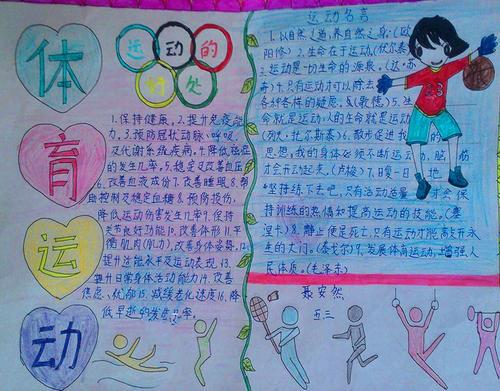 体
育
运
动
运动的
好处
1.保持健康。2.提升免疫能
力。3.预防冠状动脉、呼吸
及代谢系统疾病。4.降低癌症
的发生几率。5.稳定及改善血压
6.改善血液成份7.改善睡眠8.帮
助控制及稳定血糖9.预防损伤,
降低运动伤害发生几率9.保持
关节良好功能10.改善体形11.平
衡肌肉(肌力),改善身体姿势。12.
提升运能水平及运动表现。13.
提升日常身体活动能力14.改善
焦虑、忧郁15.减缓老化速度16.降
低早逝的发生率。
运动名言
1.以自然之道,养自然之身;(欧
阳修)2.生命在于运动(伏尔泰)
3.运动是一切生命的源泉。(达·芬
奇)4.只有运动才可以除去
各种各样的疑虑。(歌德)5.生
命就是运动,人的生命就是运动
(列夫·托尔斯泰)6.散步促进我的
思想,我的身体必须不断运动,脑筋
才会开动起来。(卢梭)7.日复一日地
坚持练下去吧,只有活动适量才会保
持训练的热情和提高运动的技能。(塞
涅卡)8.静止便是死亡,只有运动才能敲开永
生的大门。(泰戈尔)9.发展体育运动,增强人
民体质。(毛泽东)
聂安然
五.三